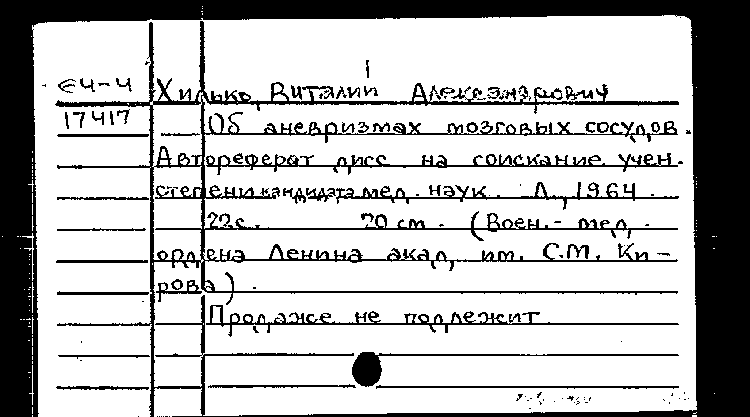 64-4 Хилько, Виталий Александрович
17417 Об аневризмах мозговых сосудов.
Автореферат дисс на соискание учен.
степени кандидата мед. наук. Л., 1964.
22с. 20 см. (Воен.-мед.
ордена Ленина акад. им. С.М. Ки-
рова).
Продаже не подлежит